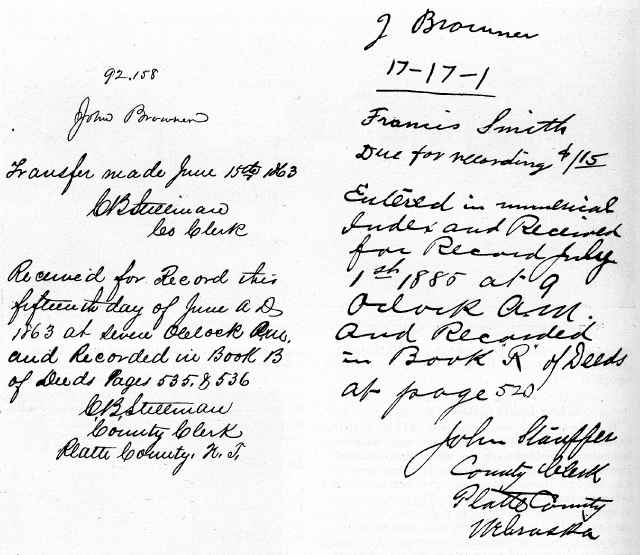 92.158
John Browner
Transfer made June 15th 1863
C B Stillman
Co Clerk
Received for Record this
fifteenth day of June A D
1863 at seven Oclock P.M.
and Recorded in Book B
of Deeds Pages 535 & 536
C. B. Stillman
County Clerk
Platte County. N. T.
J Browner
17-17-1
Francis Smith
Due for recording $1/15
Entered in numerical
Index and Received
for Record July
1st 1885 at 9
Oclock A.M.
and Recorded
in Book "R" of Deeds
at page 520
John Stauffer
County Clerk
Platte County
Nebraska